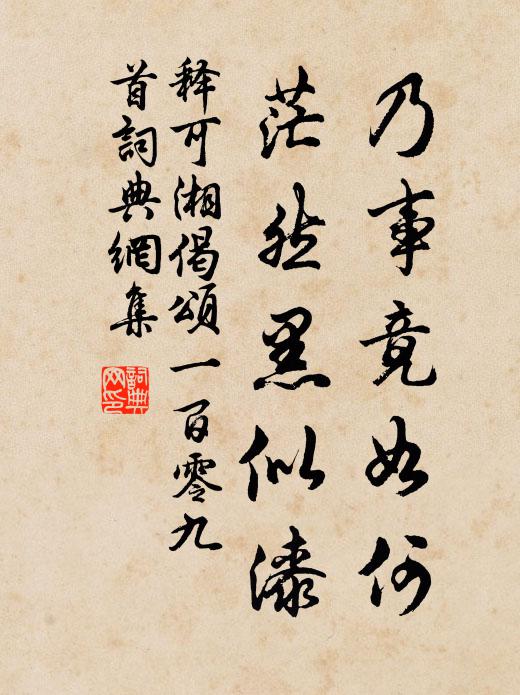 乃事竟如何
茫然黑似漆
释可湘偈頌一百零九
首詞典網集
詞典
网印